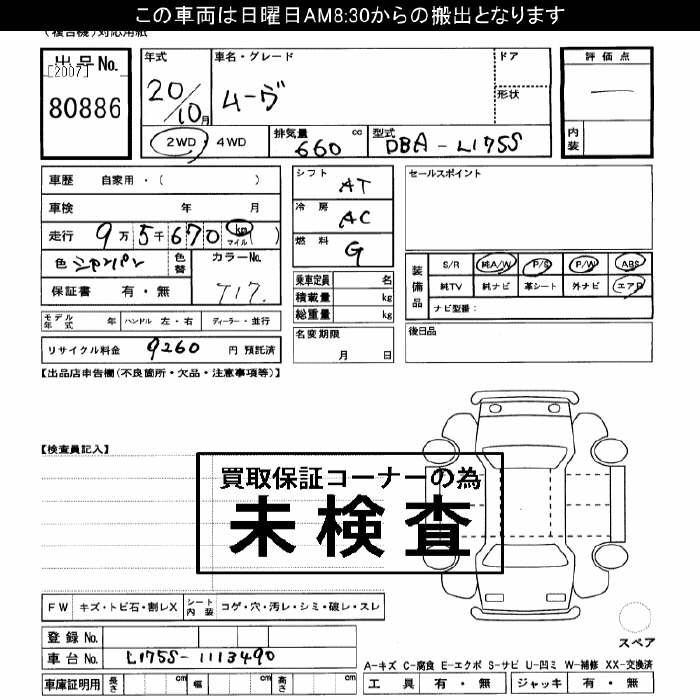 この車両は日曜日AM8:30からの搬出となります
(複合機)対応用紙
出品No.
[2007]
80886
年式
20/10月
車名・グレード
ムーヴ
ドア
形状
2WD・4WD
排気量
660
cc
型式
DBA-L175S
評価点
—
内装
車歴 自家用・( )
車検 年 月
走行 9万5千670 km マイル ( )
色 シャンパン 色替 カラーNo.
保証書 有・無 T17.
モデル年式 年 ハンドル 左・右 ディーラー・並行
リサイクル料金 9260 円 預託済
シフト AT
冷房 AC
燃料 G
乗車定員 名
積載量 kg
総重量 kg
名変期限
月 日
セールスポイント
装備品
S/R 純A/W P/S P/W ABS
純TV 純ナビ 革シート 外ナビ エアB
ナビ型番:
後日品
【出品店申告欄(不良箇所・欠品・注意事項等)】
【検査員記入】
買取保証コーナーの為
未検査
FW キズ・トビ石・割レX シート内装 コゲ・穴・汚レ・シミ・破レ・スレ
登録No.
車台No. L175S-1113490
車庫証明用 長さ cm 幅 cm 高さ cm
スペア
A-キズ C-腐食 E-エクボ S-サビ U-凹ミ W-補修 XX-交換済
工具 有・無 ジャッキ 有・無